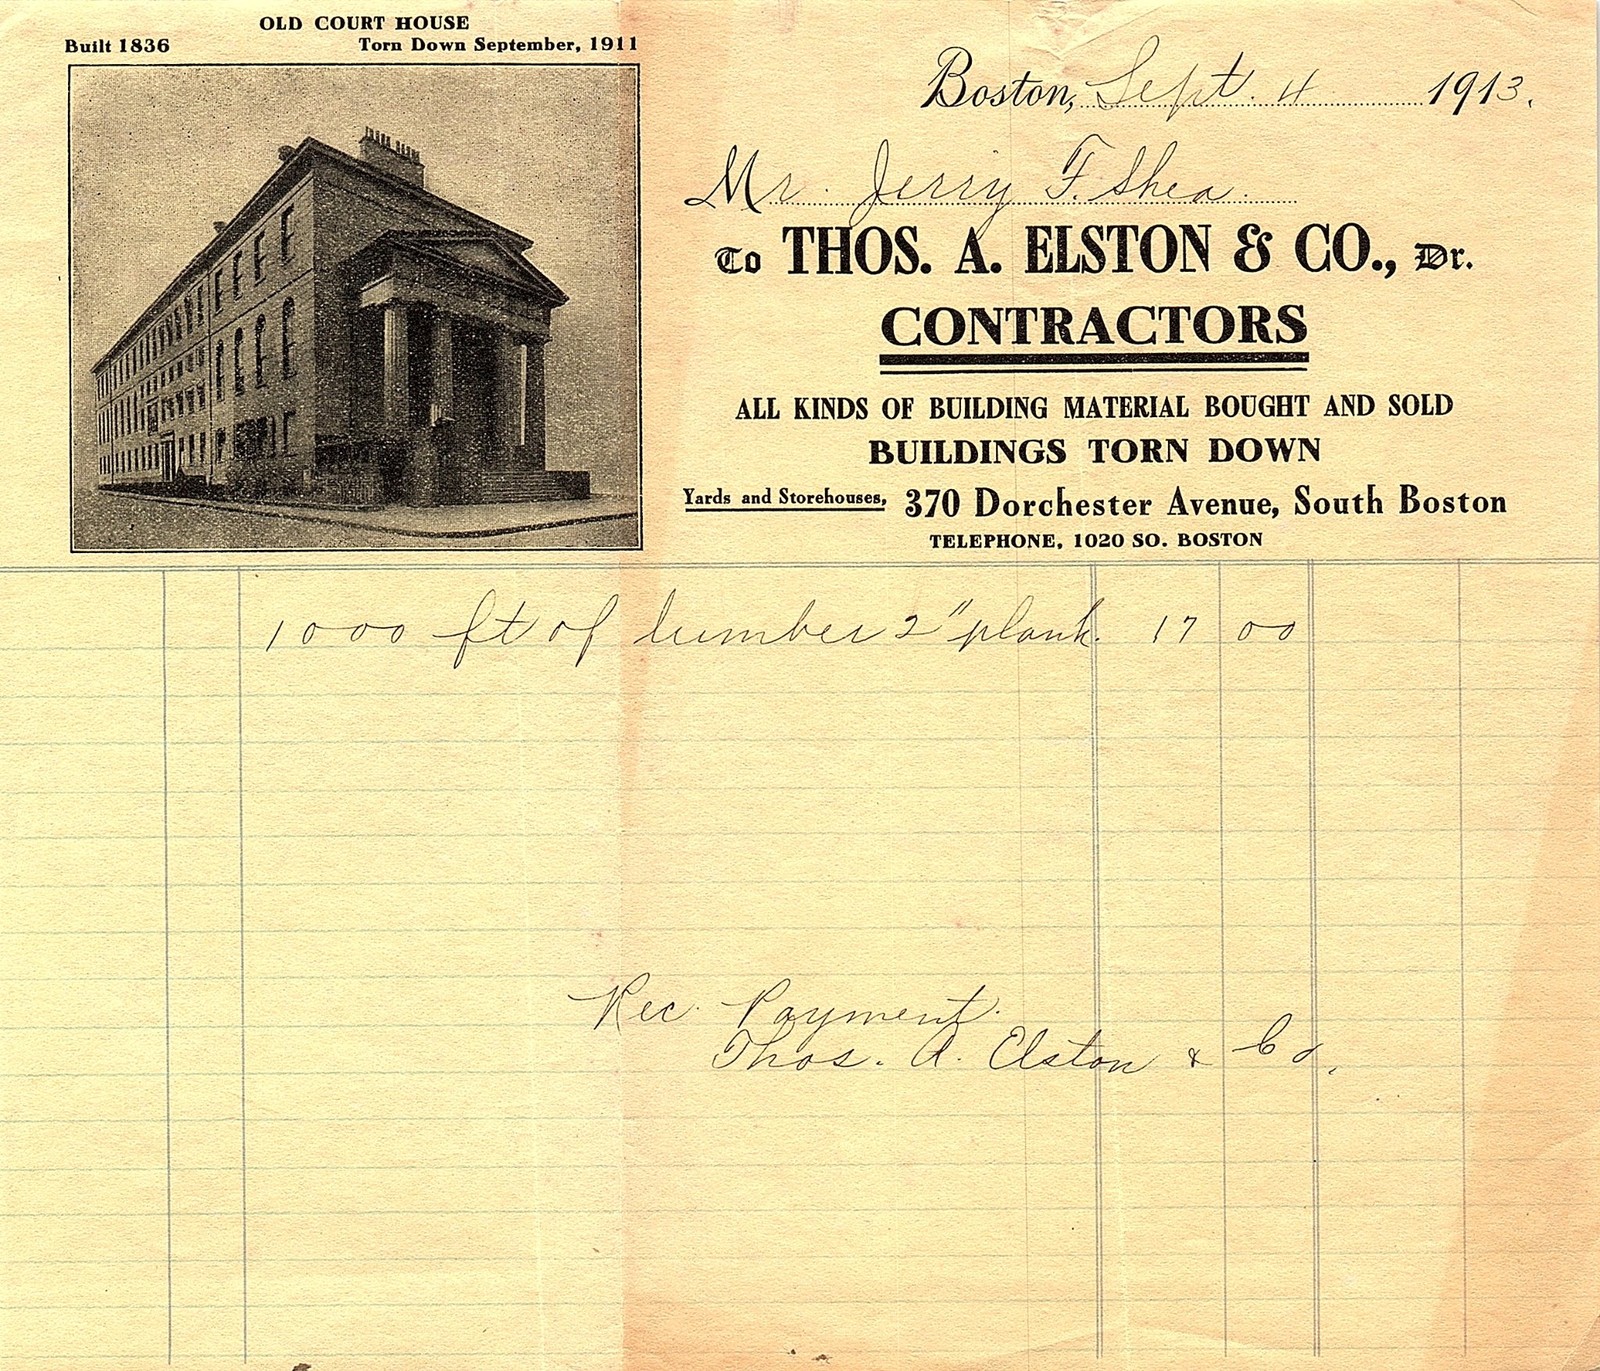 OLD COURT HOUSE
Built 1836 Torn Down September, 1911
Boston, Sept. 4 1913.
Mr. Jerry F. Shea.
To THOS. A. ELSTON & CO., Dr.
CONTRACTORS
ALL KINDS OF BUILDING MATERIAL BOUGHT AND SOLD
BUILDINGS TORN DOWN
Yards and Storehouses, 370 Dorchester Avenue, South Boston
TELEPHONE, 1020 SO. BOSTON
1000 ft of lumber 2" plank. 17 00
Rec. Payment.
Thos. A. Elston & Co.